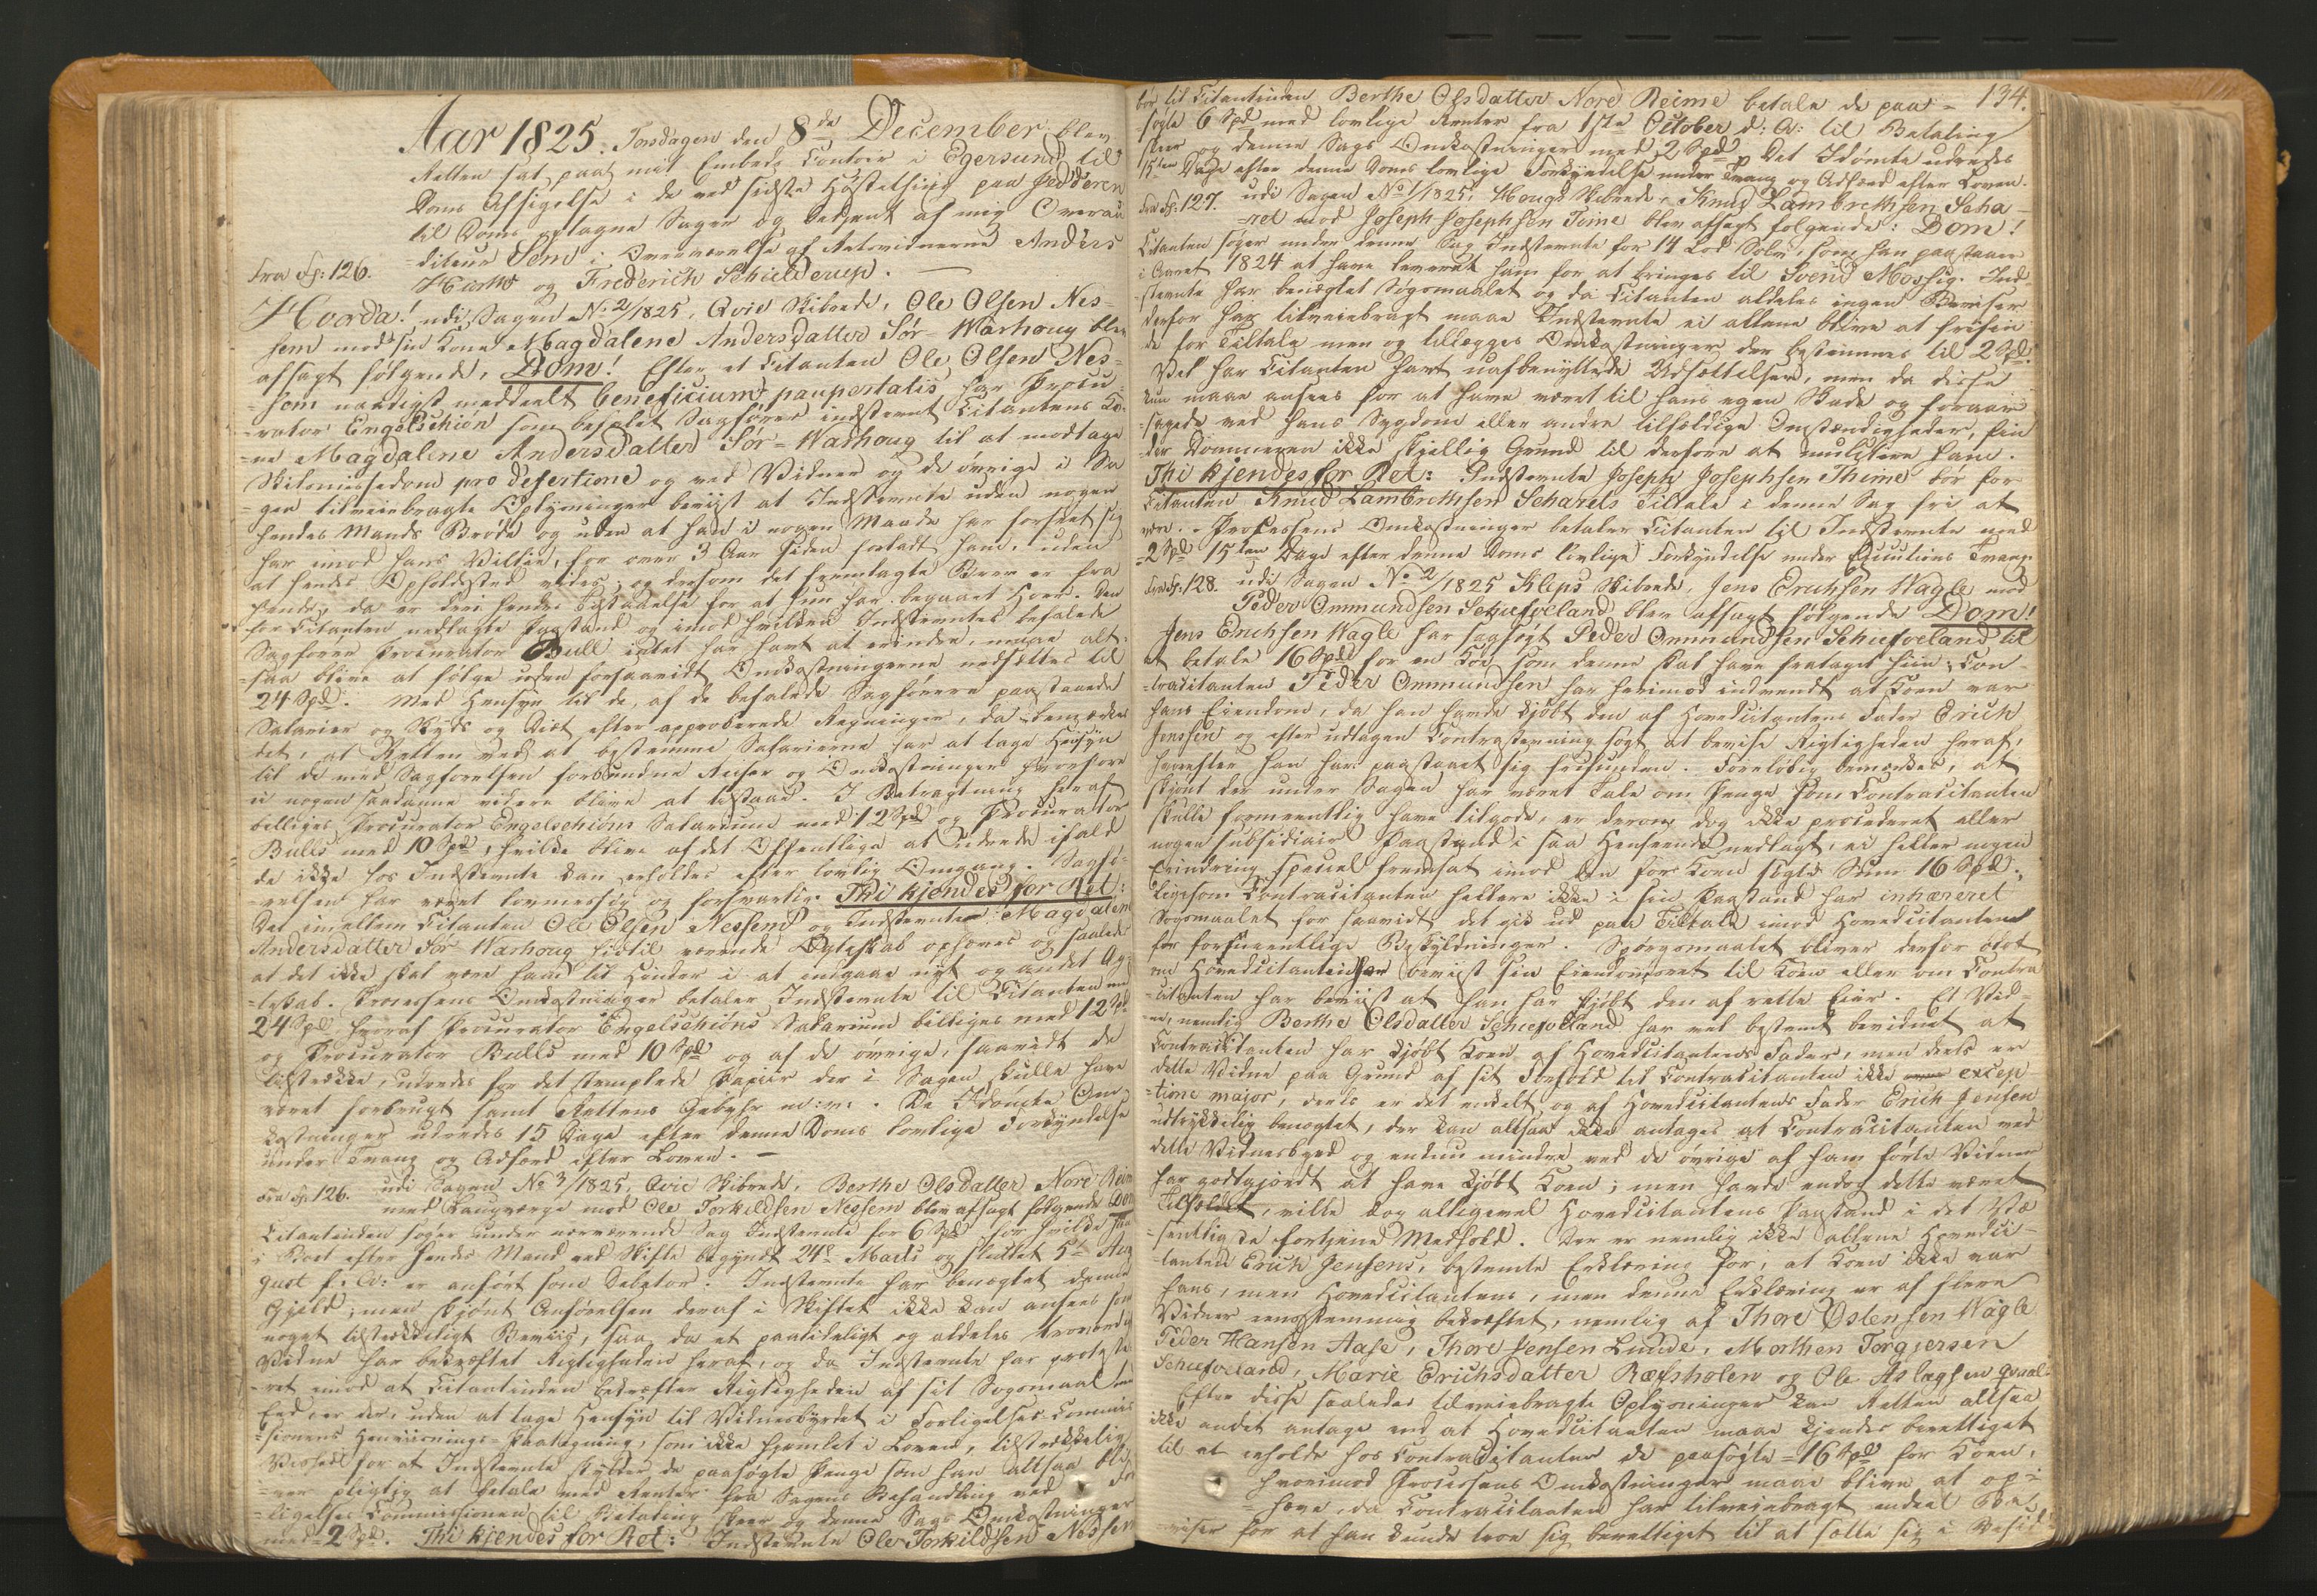 Aar 1825. Torsdagen den 8de December blev
Retten sat paa mit Embeds Contoir i Egersund til
Doms Afsigelse i de ved sidste Høstething paa Jedderen
til Doms optagne Sager og betjent af mig Overau
diteur Sem i Overværelse af Retsvidnerne Anders
Fra fol: 126. og Frederich Schielderup. —
Hvorda! udi Sagen No 2/1825, Qvie Skibrede, Ole Olsen Nes-
sem mod sin Kone Magdalene Andersdatter Sør-Warhoug blev
afsagt følgende, Dom! Efter at Citanten Ole Olsen Nes-
-sem naadigst meddeelt beneficium paupertatis har Procu-
-rator Engelschiøn som befalet Sagfører indstevnt Citantens Ko-
-ne Magdalene Andersdatter Sør-Warhoug til at modtage
Skilsmissedom pro desertione og ved Vidner og de øvrige i Sa
-gen tilveiebragte Oplysninger beviist at Indstevnte uden nogen
hendes Mands Brøde og uden at han i nogen Maade har forseet sig
har imod hans Villie, for over 3 Aar siden forladt ham, uden
at hendes Opholdssted vides; og dersom det fremlagte Brev er fra
hende, da er deri hendes Tilstaaelse for at hun har begaaet Hoer. Den
for Citanten nedlagte Paastand og imod hvilken Indstevntes befalede
Sagfører Procurator Bull intet har havt at erindre, maae alt-
-saa blive at følge uden forsaavidt Omkostningerne nedsættes til
24 Spd. Med Hensyn til de, af de befalede Sagførere paastaaede
Salarier og Skyds og Diæt efter approberede Regninger, da bemærkes
det, at Retten ved at bestemme Salarierne har at tage Hensyn
til de med Sagførelsen forbundne Reiser og Omkostninger hvorfore
ei nogen saadanne videre blive at tilstaae. I Betragtning heraf
billiges Procurator Engelschiøns Salarium med 12 Spd og Procurator
Bulls med 10 Spd, hvilke blive af det Offentlige at udrede ifald
de ikke hos Indstevnte kan erholdes efter lovlig Omgang. Sagfø-
-relsen har været lovmessig og forsvarlig. Thi kjendes for Ret:
Det imellem Citanten Ole Olsen Nessem og Indstevnte Magdalene
Andersdatter Sør Warhoug hidtil værende Ægteskab ophæves og saaledes
at det ikke skal være ham til Hinder i at indgaae nyt og andet Æg
-teskab. Processens Omkostninger betaler Indstevnte til Citanten med
24 Spd hvoraf Procurator Engelschiøns Salarium billiges med 12 Spd
og Procurator Bulls med 10 Spd og af de øvrige, saavidt de
tilstrække, udredes for det stemplede Papiir der i Sagen skulle have
været forbrugt samt Rettens Gebyhr m: v: . De Idømte Om-
kostninger udredes 15 Dage efter denne Doms lovlige Forkyndelse
under Tvang og Adfærd efter Loven. —
Fra fol: 126. udi Sagen No 3/1825, Qvie Skibrede, Berthe Olsdatter Nore Reime
med Laugværge mod Ole Torkildsen Nessem blev afsagt følgende Dom
Citantinden søger under nærværende Sag Indstevnte for 6 Spd for hvilke han
i Boet efter hendes Mand ved Skifte begyndt 24de Marts og sluttet 5te Au
gust f: A: er anført som Debitor. Indstevnte har benægtet denne
Gjeld; men skjønt Anførelsen deraf i Skiftet ikke kan ansees som
noget tilstrækkeligt Beviis, saa da et paalideligt og aldeles troværdigt
Vidne har bekræftet Rigtigheden heraf, og da Indstevnte har proteste
-ret imod at Citantinden bekræfter Rigtigheden af sit Søgsmaal med
Eed, er der, uden at tage Hensyn til Vidnesbyrdet i Forligelses-Commis
-sionens Henviisnings-Paategning, som ikke hjemlet i Loven, tilstrækkelig
Vished for at Indstevnte skylder de paasøgte Penge som han altsaa bli
-ver pligtig at betale med Renter fra Sagens Behandling ved For
-ligelses Commissionen til Betaling skeer og denne Sags Omkostninger
med 2 Spd. Thi kjendes for Ret: Indstevnte Ole Torkildsen Nessem
134.
bør til Citantinden Berthe Olsdatter Nore Reime betale de paa-
søgte 6 Spd med lovlige Renter fra 1ste October d: A: til Betaling
skeer og denne Sags Omkostninger med 2 Spd. Det Idømte udredes
15ten Dage efter denne Doms lovlige Forkyndelse under Tvang og Adfærd efter Loven.
Fra fol: 127. udi Sagen No 1/1825, Hougs Skibrede, Knud Lambrethsen Scha-
-rel mod Joseph Josephsen Time blev afsagt følgende: Dom!
Citanten søger under denne Sag Indstevnte for 14 Lod Sølv, som han paastaaer
i Aaret 1824 at have leveret ham for at bringes til Svend Mossig. Ind-
-stevnte har benægtet Søgsmaalet og da Citanten aldeles ingen Beviser
derfor har tilveiebragt maae Indstevnte ei allene blive at frifin
de for Tiltale men og tillægges Omkostninger der bestemmes til 2 Spd.
Vel har Citanten havt uafbenyttede Udsættelser, men da disse
kun maae ansees for at have været til hans egen Skade og foraar-
-sagede ved hans Sygdom eller andre tilfældige Omstændigheder, fin
der Dommeren ikke skjellig Grund til derfore at mulctere ham.
Thi kjendes for Ret: Indstevnte Joseph Josephsen Thime bør for
Citanten Knud Lambrethsen Scharels Tiltale i denne Sag fri at
være. Processens Omkostninger betaler Citanten til Indstevnte med
2 Spd 15ten Dage efter denne Doms lovlige Forkyndelse under Executions Tvang.
Fra fol: 128. udi Sagen No 2/1825 Kleps Skibrede, Jens Erichsen Wagle mod
Peder Ommundsen Schiefveland blev afsagt følgende Dom!
Jens Erichsen Wagle har sagsøgt Peder Ommundsen Schiefveland til
at betale 16 Spd for en Koe som denne skal have frataget hiin; Con-
-tracitanten Peder Ommundsen har herimod indvendt at Koen var
hans Eiendom, da han havde kjøbt den af Hovedcitantens Fader Erich
Jenssen og efter udtagen Contrastevning søgt at bevise Rigtigheden heraf,
hvorefter han har paastaaet sig frifunden. Foreløbig bemærkes, at
skjønt der under Sagen har været Tale om Penge som Contracitanten
skulle formeentlig have tilgode, er derom dog ikke procederet eller
nogen subsidiair Paastand i saa Henseende nedlagt, ei heller nogen
Erindring speciel fremsat imod den for Koen søgte Sum 16 Spd.,
ligesom Contracitanten heller ikke i sin Paastand har inhæreret
Søgsmaalet for saavidt det gik ud paa Tiltale imod Hovedcitanten
for formeentlige Beskyldninger. Spørgsmaalet bliver derfor blot
om Hovedcitanten har beviist sin Eiendomsret til Koen eller om Contra
citanten har beviist at han har kjøbt den af rette Eier. Et Vid-
-ne, nemlig Berthe Olsdatter Schiefveland har vel bestemt bevidnet at
Contracitanten har kjøbt Koen af Hovedcitantens Fader, men deels er
dette Vidne paa Grund af sit Forhold til Contracitanten ikke excep-
-tione major, deels er det enkelt og af Hovedcitantens Fader Erich Jensen
udtrykkelig benægtet, der kan altsaa ikke antages at Contracitanten ved
dette Vidnesbyrd og endnu mindre ved de øvrige af ham førte Vidner
har godtgjordt at have kjøbt Koen; men havde endog dette været
Tilfældet, ville dog alligevel Hovedcitantens Paastand i det Væ
-sentligste fortjene Medhold. Der er nemlig ikke allene Hovedci-
-tantens Erich Jensens, bestemte Erklæring for, at Koen ikke var
hans, men Hovedcitantens, men denne Erklæring er af flere
Vidner eensstemmig bekræftet, nemlig af Thore Østensen Wagle
Peder Hansen Aase, Thore Jensen Lunde, Morthen Torgjersen
Schiefveland, Marie Erichsdatter Ræfsholen og Ole Aslagsen Qvaal.
Efter disse saaledes tilveiebragte Oplysninger kan Retten altsaa
ikke andet antage end at Hovedcitanten maae kjendes berettiget
til at erholde hos Contracitanten de paasøgte 16 Spd for Koen,
hvorimod Processens Omkostninger maae blive at op-
-hæve, da Contracitanten har tilveiebragt endeel Be-
-viser for at han kunde troe sig berettiget til at sætte sig i Besid